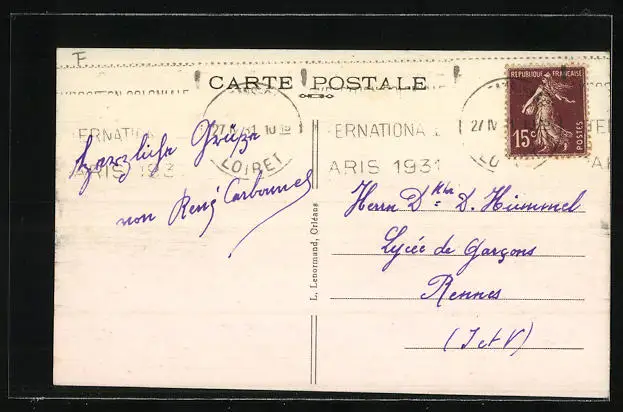 F
CARTE POSTALE
EXPOSITION COLONIALE
INTERNATIONALE
PARIS 1931
27 IV 31 10
LOIRET
REPUBLIQUE FRANCAISE
15c
POSTES
Herzliche Grüße
von René Carbonnel
L. Lenormand, Orléans
Herrn Dr D. Hümmel
Lycée de Garçons
Rennes
(I et V)